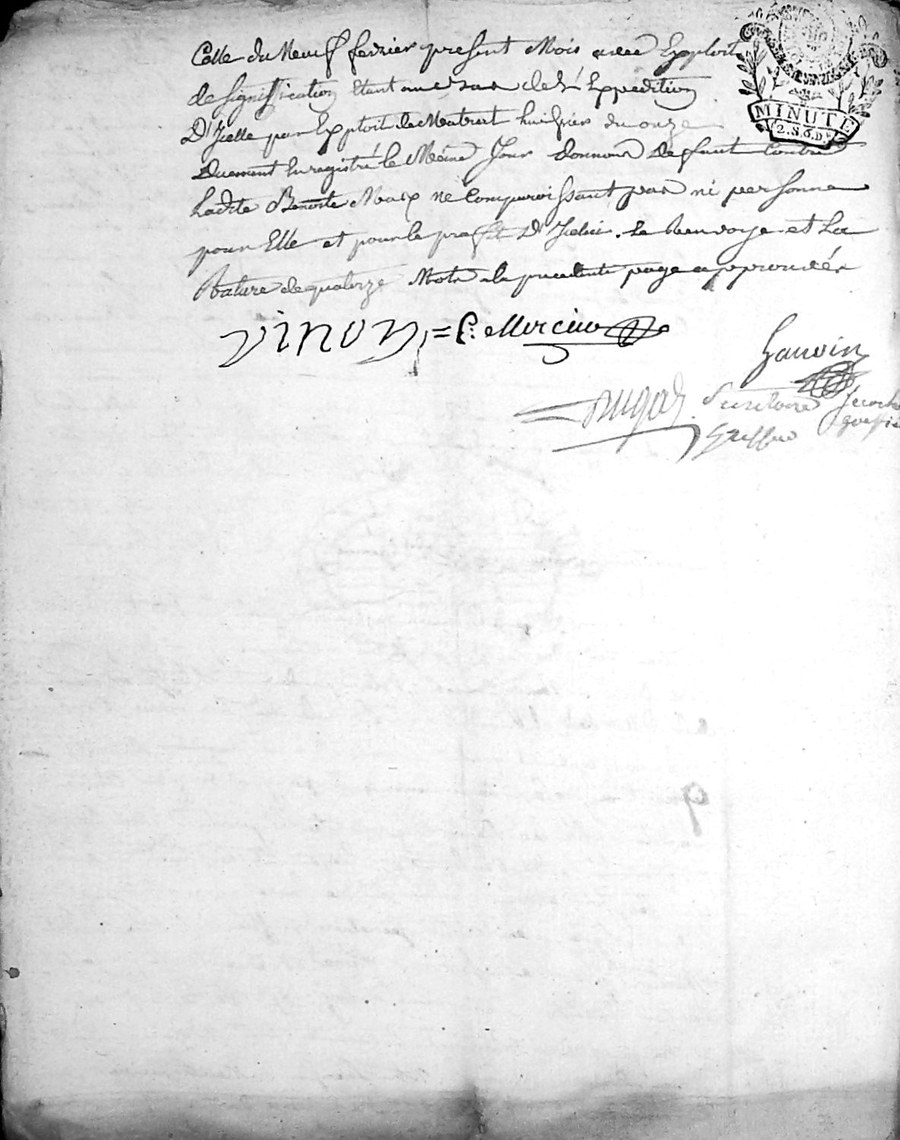 Celle du Neuf fevrier present Mois avec Exploit
de signiffication Etant au bas de l'Expedition
D'Jcelle par Exploit de huissier du onze
Duement Enregistré le Même Jour donnons Deffaut Contre
Ladite Benoite Maix ne Comparoissant pas ni personne
pour Elle et pour le proffit D'Jcelui. Le Renvoye et La
Rature de quatorze Mots de la precedente page approuvés
MINUTE
2. S. 6. Ds
vinon = C. Mercier
Gauvin
Secretaire
Greffier